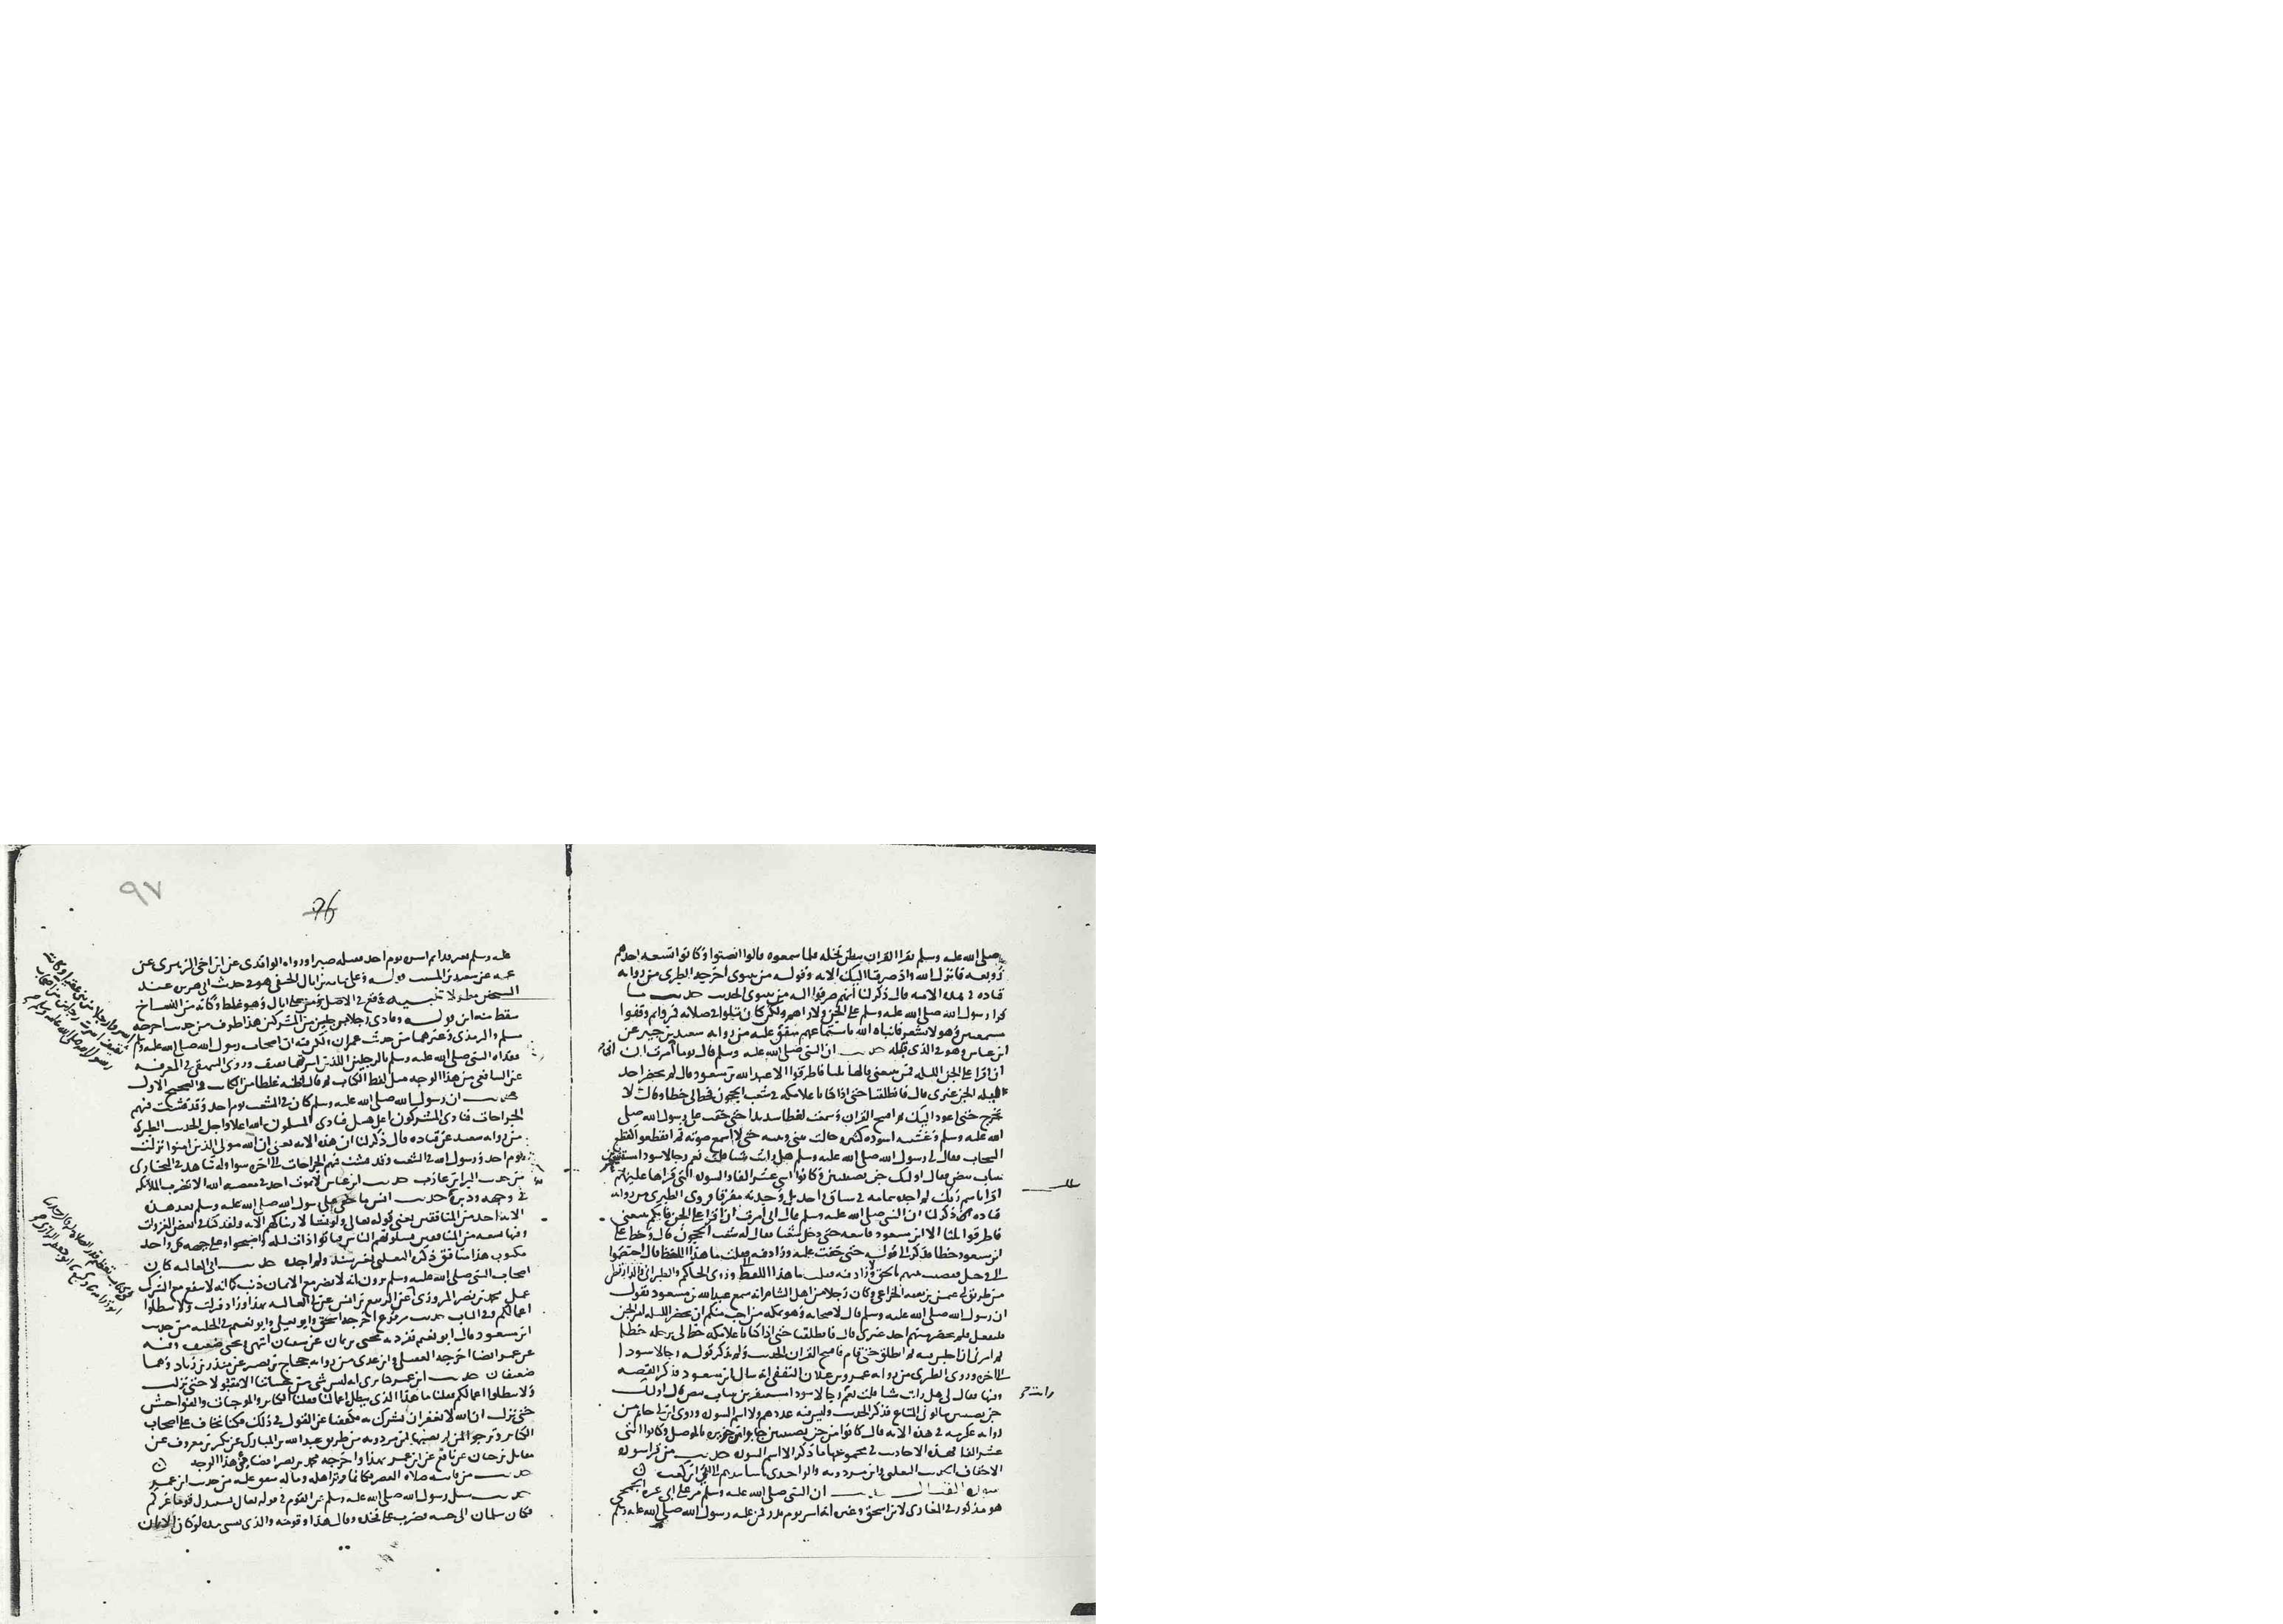 صلى الله عليه وسلم يقرا القران ببطن نخله فلما سمعوه قالوا انصتوا وكانوا تسعه احدهم
زوبعه فانزل الله واذ صرفنا اليك الايه وقوله من نينوى اخرجه الطبرى من روايه
قتاده فى هذه الايه قال ذكر لنا انهم صرفوا اليه من نينوى الحديث حديث ما
قرا رسول الله صلى الله عليه وسلم على الجن ولا راهم ولكن كان يتلوا فى صلاته فمروا به فوقفوا
مستمعين وهو لا يشعر فانباه الله باستماعهم متفق عليه من روايه سعيد بن جبير عن
ابن عباس وهو فى الذى قبله حديث ان النبى صلى الله عليه وسلم قال يوما امرت ان
ان اقرا على الجن الليله فمن يتبعنى قالها ثلثا فاطرقوا الا عبد الله بن مسعود قال لم يحضر احد
ليله الجن غيرى قال فانطلقنا حتى اذا كنا باعلا مكه فى شعب الحجون فخط لى خطا وقال لا
تخرج حتى اعود اليك ثم افتتح القران وسمعت لغطا شديدا حتى خفت على رسول الله صلى
الله عليه وسلم وغشيته اسوده كثيره حالت بينى وبينه حتى لا اسمع صوته ثم انقطعوا كقطع
السحاب فقال لى رسول الله صلى الله عليه وسلم هل رايت شيا قلت نعم رجالا سودا
ثياب بيض فقال اولئك جن نصيبين وكانوا اثنى عشر الفا والسوره التى قراها عليهم
اقرا باسم ربك لم اجده بتمامه فى سياق واحد بل وجدته مفرقا فروى الطبرى من روايه
قتاده ذكر لنا ان النبى صلى الله عليه وسلم قال انى امرت ان اقرا على الجن فايكم يتبعنى
فاطرقوا ثلثا الا ابن مسعود فاتبعه حتى دخل شعبا يقال له شعب الحجون قال وخط على
ابن مسعود خطا فذكر الى قوله حتى خفت عليه وزاد فيه فقلت ما هذا اللغط قال اختصموا
الى فى قتيل فقضيت بينهم بالحق وزاد فيه فقلت ما هذا اللغط وروى الحاكم والطبرانى والدارقطنى
من طريق ابى عثمن بن سنه الخزاعى وكان رجلا من اهل الشام انه سمع عبد الله بن مسعود يقول
ان رسول الله صلى الله عليه وسلم قال لاصحابه وهو بمكه من احب منكم ان يحضر الليله امر الجن
فليفعل فلم يحضر منهم احد غيرى قال فانطلقنا حتى اذا كنا باعلا مكه خط لى برجله خطا
ثم امرنى ان اجلس فيه ثم انطلق حتى قام فافتتح القران الحديث ولم يذكر قوله رجالا سودا
الى اخره وروى الطبرى من روايه عمرو بن غيلان الثقفى انه سال ابن مسعود فذكر القصه
وفيها فقال لى هل رايت شيا قلت نعم رجالا سودا مستثفرين بثياب بيض قال اولئك
جن نصيبين سالونى المتاع فذكر الحديث وليس فيه عددهم ولا اسم السوره وروى ابن ابى حاتم من
روايه عكرمه فى هذه الايه قال كانوا من جن نصيبين جاوا من جزيره الموصل وكانوا اثنى
عشر الفا فهذه الاحاديث فى مجموعها ما ذكر الا اسم السوره حديث من قرا سوره
الاحقاف الحديث الثعلبى وابن مردويه والواحدى باسانيدهم الى ابى ابن كعب
سوره القتال حديث ان النبى صلى الله عليه وسلم من على ابى عزه الجمحى
هو مذكور فى المغازى لابن اسحق وغيره انه اسر يوم بدر فمن عليه رسول الله صلى الله عليه وسلم
رايت
٩٧
76
عليه وسلم بغير فداء ثم اسره يوم احد فقتله صبرا ورواه الواقدى عن ابن اخى الزهرى عن
عمه عن سعيد بن المسيب قوله وعلى ثمامه بن اثال الحنفى هو فى حديث ابى هريره عند
الشيخين مطولا تنبيه وقع فى الاصل ومن على اثال وهو غلط وكانه من النساخ
سقط منه ابن قوله وفادى رجلا برجلين من المشركين هذا طرف من حديث اخرجه
مسلم والترمذى وغيرهما من حديث عمران لكن فيه ان اصحاب رسول الله صلى الله عليه وسلم
ففداه النبى صلى الله عليه وسلم بالرجلين اللذين اسرتهما ثقيف وروى البيهقى فى المعرفه
عن الشافعى من هذا الوجه مثل لفظ الكتاب ثم قال اظنه غلطا من الكاتب والصحيح الاول
حديث ان رسول الله صلى الله عليه وسلم كان فى الشعب يوم احد وقد فشت فيهم
الجراحات فنادى المشركون اعل هبل فنادى المسلمون الله اعلا واجل الحديث الطبرى
من روايه سعيد عن قتاده قال ذكر لنا ان هذه الايه يعنى ان الله مولى الذين امنوا نزلت
يوم احد ورسول الله فى الشعب وقد فشت فيهم الجراحات الى اخره سوا وله شاهد فى البخارى
من حديث البرا بن عازب حديث ابن عباس لا يموت احد فى معصيه الله الا تضرب الملائكه
فى وجهه ودبره حديث انس ما خفى على رسول الله صلى الله عليه وسلم بعد هذه
الايه احد من المنافقين يعنى قوله تعالى ولو نشا لاريناكهم الايه ولقد كنا فى بعض الغزوات
وفيها تسعه من المنافقين يشكوهم الناس فناموا ذات ليله واصبحوا وعلى جبهه كل واحد
مكتوب هذا منافق ذكره الثعلبى بغير سند ولم اجده حديث ابى العاليه كان
اصحاب النبى صلى الله عليه وسلم يرون انه لا يضر مع الايمان ذنب كما انه لا ينفع مع الشرك
عمل محمد بن نصر المروزى عن الربيع بن انس عن ابى العاليه بهذا وزاد فنزلت ولا تبطلوا
اعمالكم وفى الباب حديث مرفوع اخرجه اسحق وابو يعلى وابو نعيم فى الحليه من حديث
ابن مسعود وقال ابو نعيم تفرد به يحيى بن يمان عن سفيان انتهى ويحيى ضعيف وفيه
عن عمر ايضا اخرجه العقيلى وابن عدى من روايه حجاج بن نصير عن منذر بن زياد وهما
ضعيفان حديث ابن عمر كنا نرى انه ليس شى من حسناتنا الا مقبولا حتى نزلت
ولا تبطلوا اعمالكم فقلنا ما هذا الذى يبطل اعمالنا فقلنا الكباير والموجبات والفواحش
حتى نزلت ان الله لا يغفر ان يشرك به فكففنا عن القول فى ذلك فكنا نخاف على اصحاب
الكباير ونرجوا لمن لم يصبها ابن مردويه من طريق عبد الله بن المبارك عن بكير بن معروف عن
مقاتل بن حيان عن نافع عن ابن عمر بهذا واخرجه محمد بن نصر ايضا من هذا الوجه
حديث من فاتته صلاه العصر فكانما وتر اهله وماله متفق عليه من حديث ابن عمر
حديث سئل رسول الله صلى الله عليه وسلم عن القوم فى قوله تعالى يستبدل قوما غيركم
فكان سلمان الى جنبه فضرب على فخذه وقال هذا وقومه والذى نفسى بيده لو كان الايمان